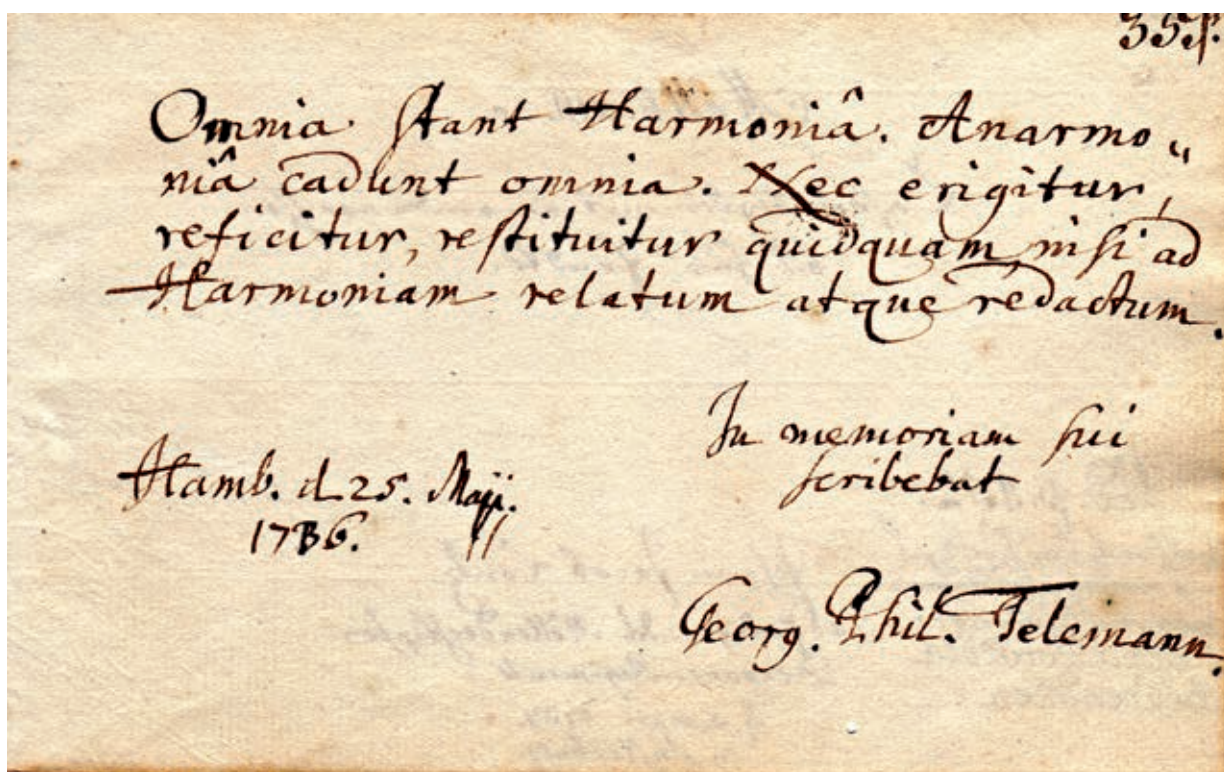 35
Omnia stant Harmoniâ. Anarmo„
niâ cadunt omnia. Nec erigitur,
reficitur, restituitur quidquam, nisi ad
Harmoniam relatum atque redactum.
In memoriam sui
scribebat
Hamb. d. 25. Maji.
1736.
Georg. Phil. Telemann.